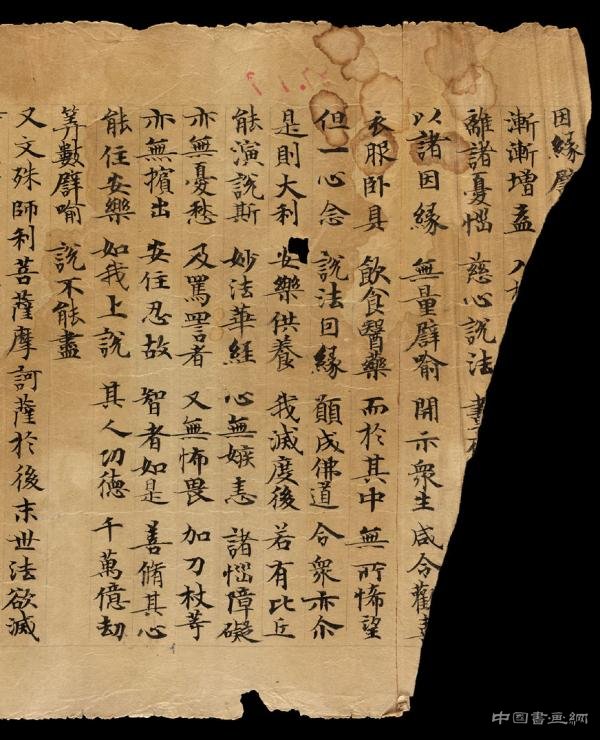 因緣譬
漸漸增益 入
離諸憂惱 慈心說法 晝夜
以諸因緣 無量譬喻 開示衆生 咸令歡喜
衣服卧具 飲食醫藥 而於其中 無所悕望
但一心念 說法因緣 願成佛道 令衆亦尒
是則大利 安樂供養 我滅度後 若有比丘
能演說斯 妙法華經 心無嫉恚 諸惱障礙
亦無憂愁 及罵詈者 又無怖畏 加刀杖等
亦無擯出 安住忍故 智者如是 善脩其心
能住安樂 如我上說 其人功德 千萬億劫
筭數譬喻 說不能盡
又文殊師利菩薩摩訶薩於後末世法欲滅
中国書画網